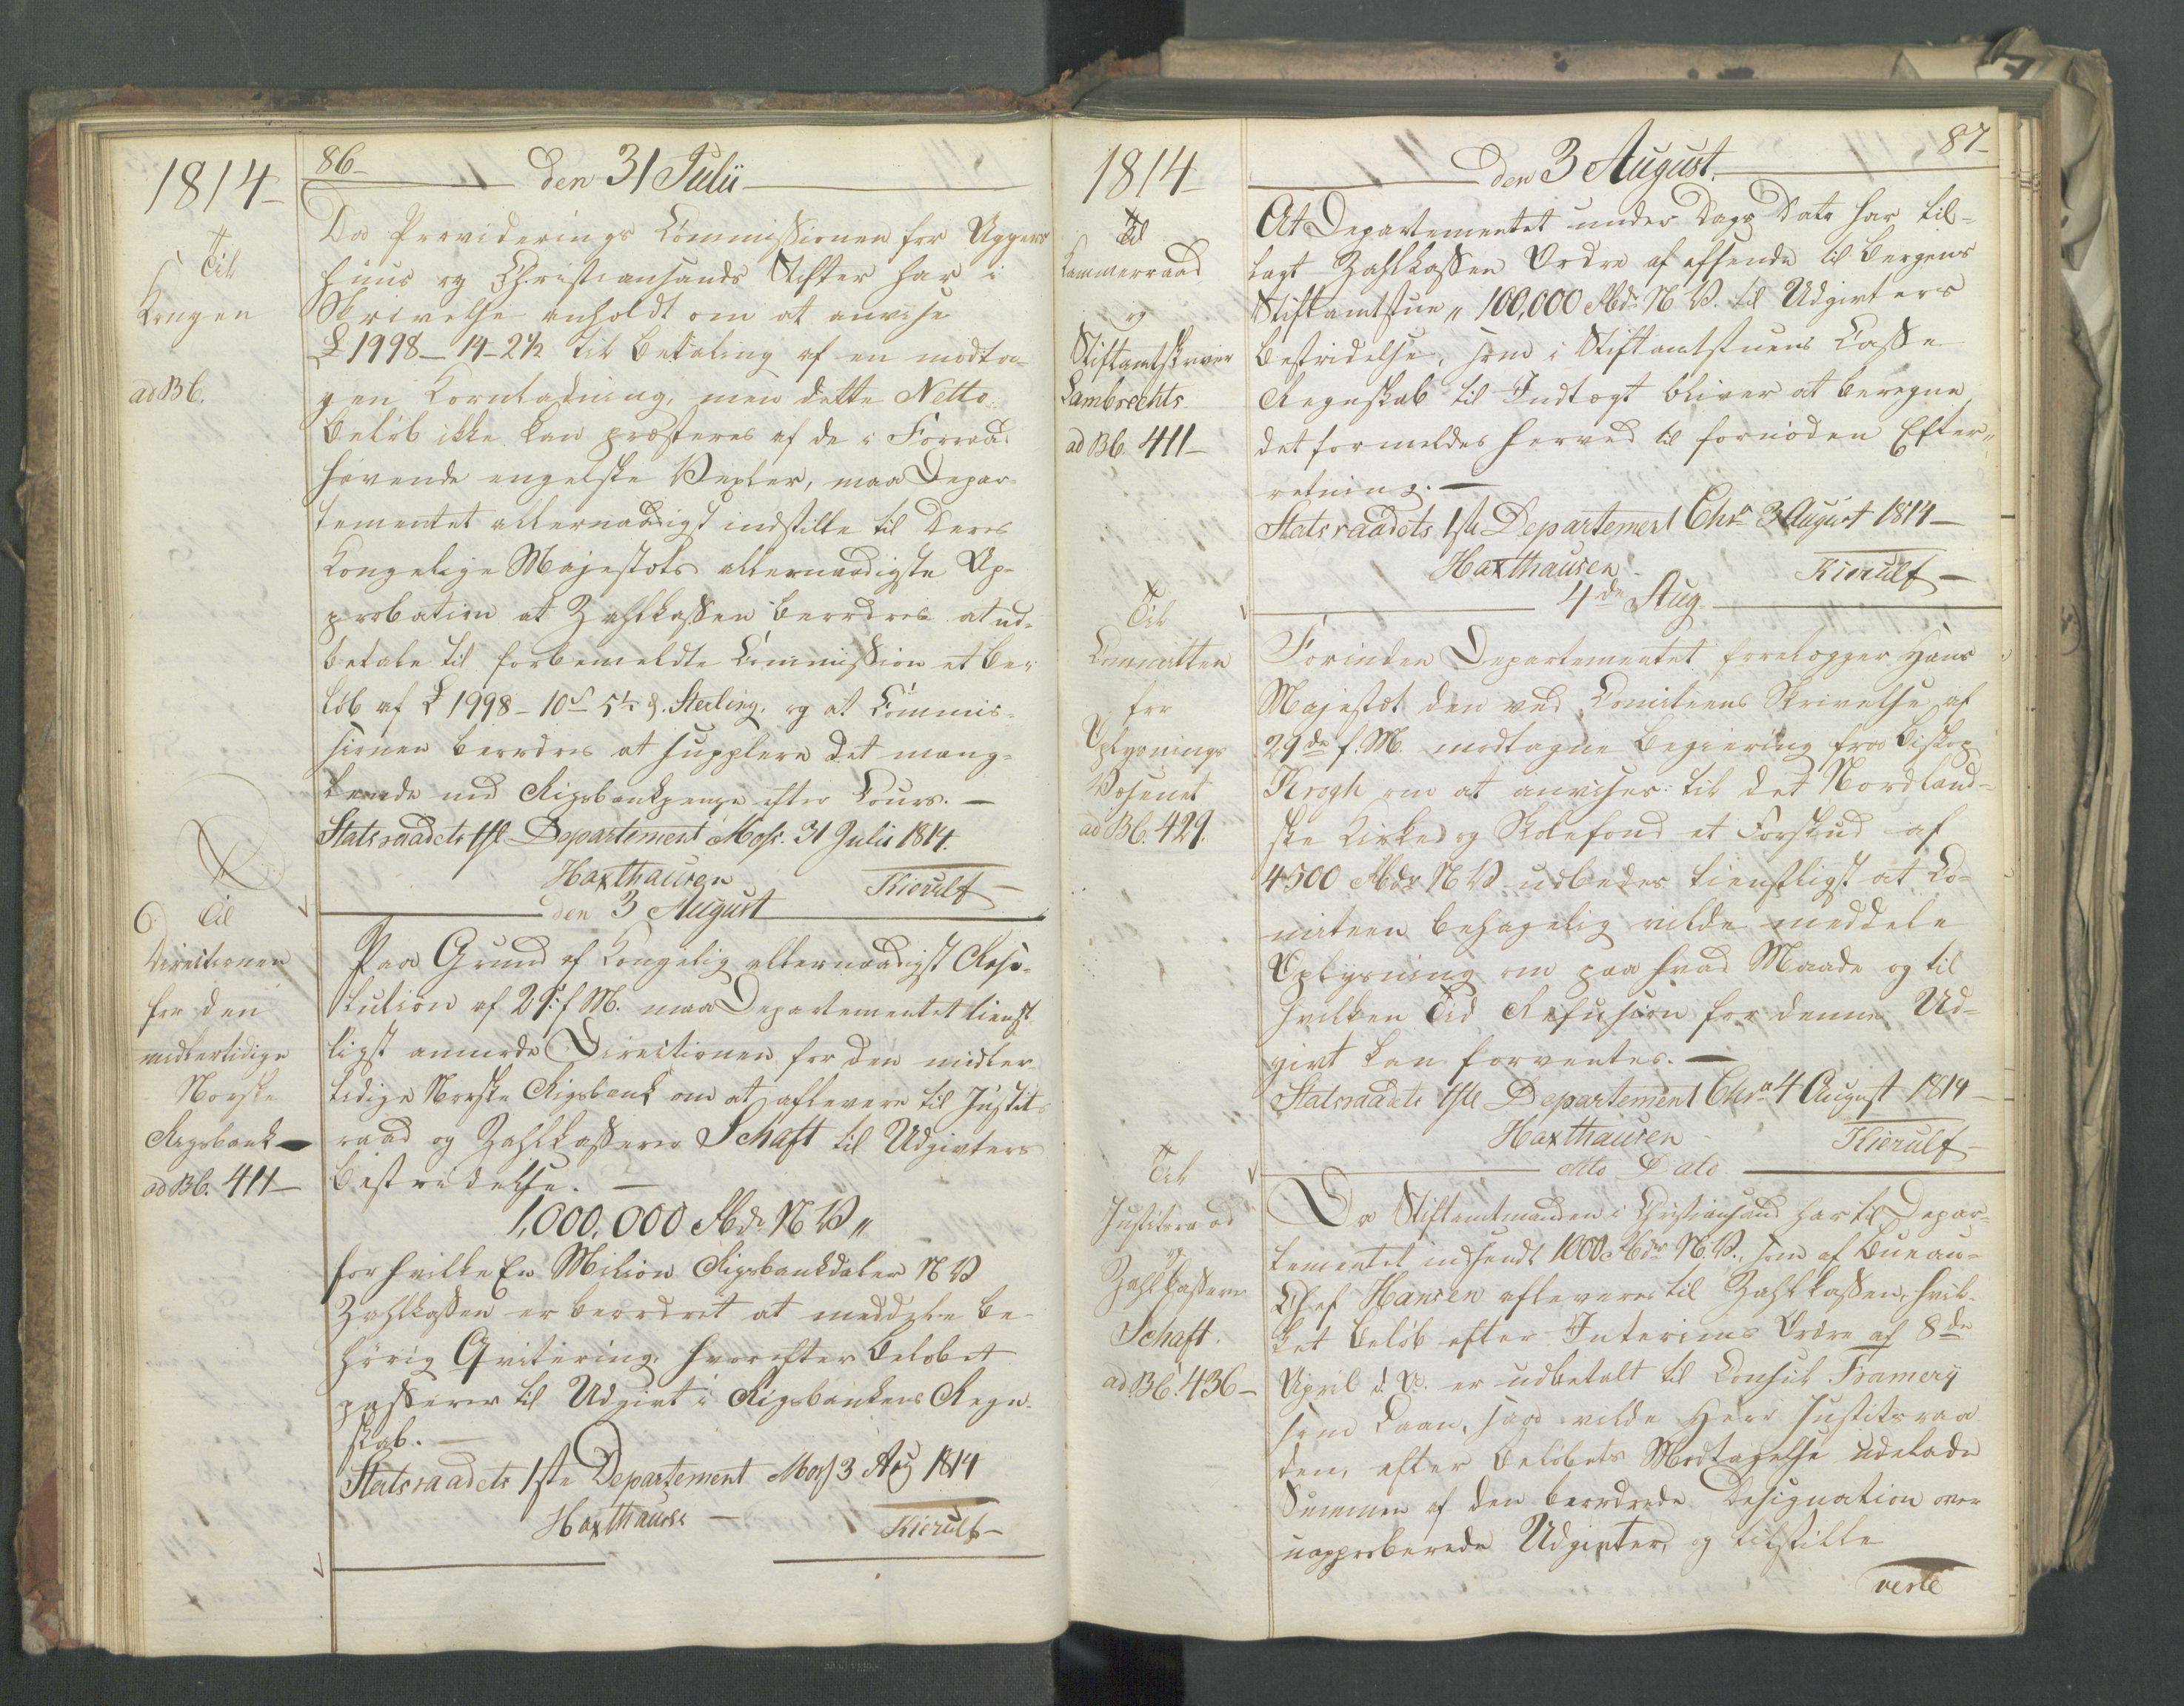 1814
86
den 31 Julii
Til
Kongen
ad B6.
Da Providerings Commissionen for Agger
huus og Christiansands Stifter har i
Skrivelse anholdt om at anvise
£ 1998 - 14 - 2½ til Betaling af en modta-
gen Kornladning, men dette Netto
Beløb ikke kan præsteres af de i Forraad
havende engelske Vexler, maa Depar-
tementet allernaadigst indstille til Deres
Kongelige Majestæts allernaadigste Ap-
probation at Zahlkassen beordres at ud-
betale til forbemeldte Commission et Be-
løb af £ 1998 - 10 s 5½ d. Sterling. og at Commis-
sionen beordres at supplere det mang-
lende med Rigsbankpenge efter Cours. —
Statsraadets 1ste Departement Moss. 31 Julii 1814.
Haxthausen
Kierulf
den 3 August
6. Til
Directionen
for den
midlertidige
Norske
Rigsbank
ad B6. 411
Paa Grund af Kongelig allernaadigst Reso-
lution af 29 f. M. maa Departementet tienst
ligst anmode Directionen for den midler
tidige Norske Rigsbank om at aflevere til Justits
raad og Zahlkasserer Schaft til Udgivters
Bestridelse. —
1,000,000 Rbdr N V „
for hvilke En Milion Rigsbankdaler N V
Zahlkassen er beordret at meddele be-
hørig Qvitering, hvorefter Beløbet
passerer til Udgivt i Rigsbankens Regn-
skab. —
Statsraadets 1ste Departement Moss 3 Aug 1814
Haxthausen
Kierulf
1814
87
den 3 August.
Til
Kammerraad
og
Stiftamtskriver
Lambrechts
ad B6. 411
At Departementet under Dags Dato har til-
lagt Zahlkassen Ordre af afsende til Bergens
Stiftamtstue „ 100,000 Rbdr N V. til Udgivters
Bestridelse, som i Stiftamtstuens Casse
Regnskab til Indtægt bliver at beregne,
det formeldes herved til fornøden Efter-
retning. —
Statsraadets 1ste Departement Chra 3 August 1814
Haxthausen
Kierulf
4de Aug
Til
Committen
for
Oplysnings
Væsenet
ad B6. 429.
Forinden Departementet forelægger Hans
Majestæt den ved Comiteens Skrivelse af
29de f. M. modtagne Begiering fra Biskop
Krogh om at anvises til det Nordland-
ske Kirke og Skolefond et Forskud af
4500 Rbdr N V udbedes tienstligst at Co-
miteen behagelig vilde meddele
Oplysning om paa hvad Maade og til
hvilken Tid Refusion for denne Ud-
givt kan forventes. —
Statsraadets 1ste Departement Chra 4 August 1814
Haxthausen
Kierulf
dito Dato
Til
Justitsraad
og
Zahlkasserer
Schaft.
ad B6. 436
Da Stiftamtmanden i Christiansand har til Depar-
tementet indsendt 1000 Rbdr N. V., som af Bureau-
Chef Hansen afleveres til Zahlkassen, hvil-
ket Beløb efter Interims Ordre af 8de
April d. A. er udbetalt til Consul Framery
som Laan, saa vilde Herr Justitsraa
den, efter Beløbets Modtagelse udelade
Summen af den beordrede Designation over
uapproberede Udgivter, og tilstille
verte